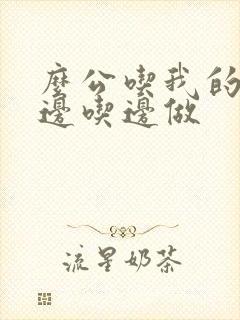 麼公喫我的
邊喫邊做
流星奶茶